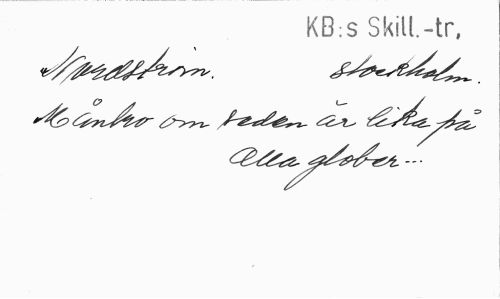 KB:s Skill.-tr,
Nordström. Stockholm.
Månbro om seden är lika på
alla glober...